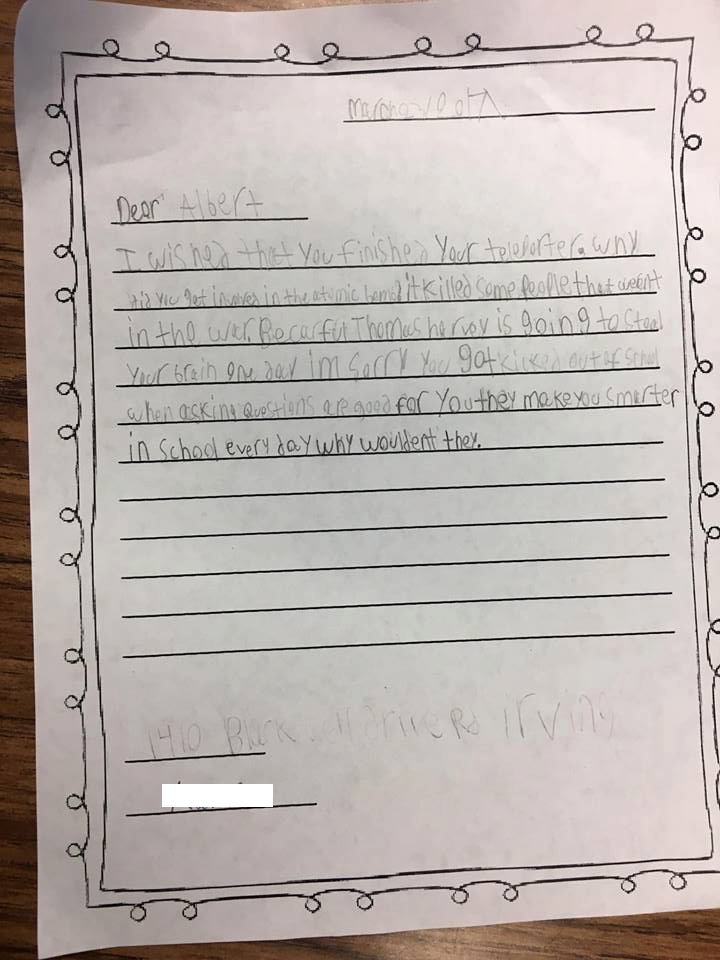 Dear Albert
I wished that you finished your teleporter. why
did you get involved in the atomic bomb? it killed some people that weren't
in the war. Be carful Thomas harvey is going to steal
your brain one day im sorry you got kicked out of school
when asking questions are good for you they make you smarter
in school every day why wouldent they.
1410 drive Rd Irving